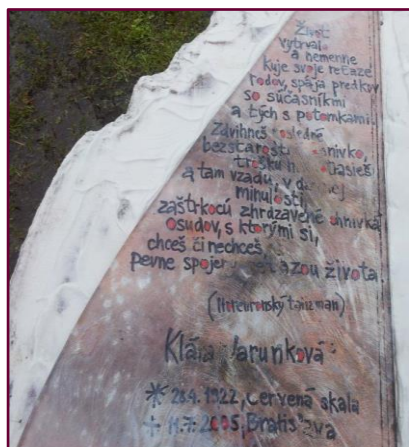 Život
vytrvalo
a nemenne
kuje svoje reťaze
rodov, spája predkov
so súčasníkmi
a tých s potomkami.
Zdvihneš posledné
bezstarostné ohnivko,
trošku ním
a tam vzadu, v dávnej
minulosti,
zaštrkocú zhrdzavené ohnivká
osudov, s ktorými si,
chceš či nechceš,
pevne spojený reťazou života.
Klára Jarunková
* 28.4.1922, Červená skala
+ 11.7.2005, Bratislava